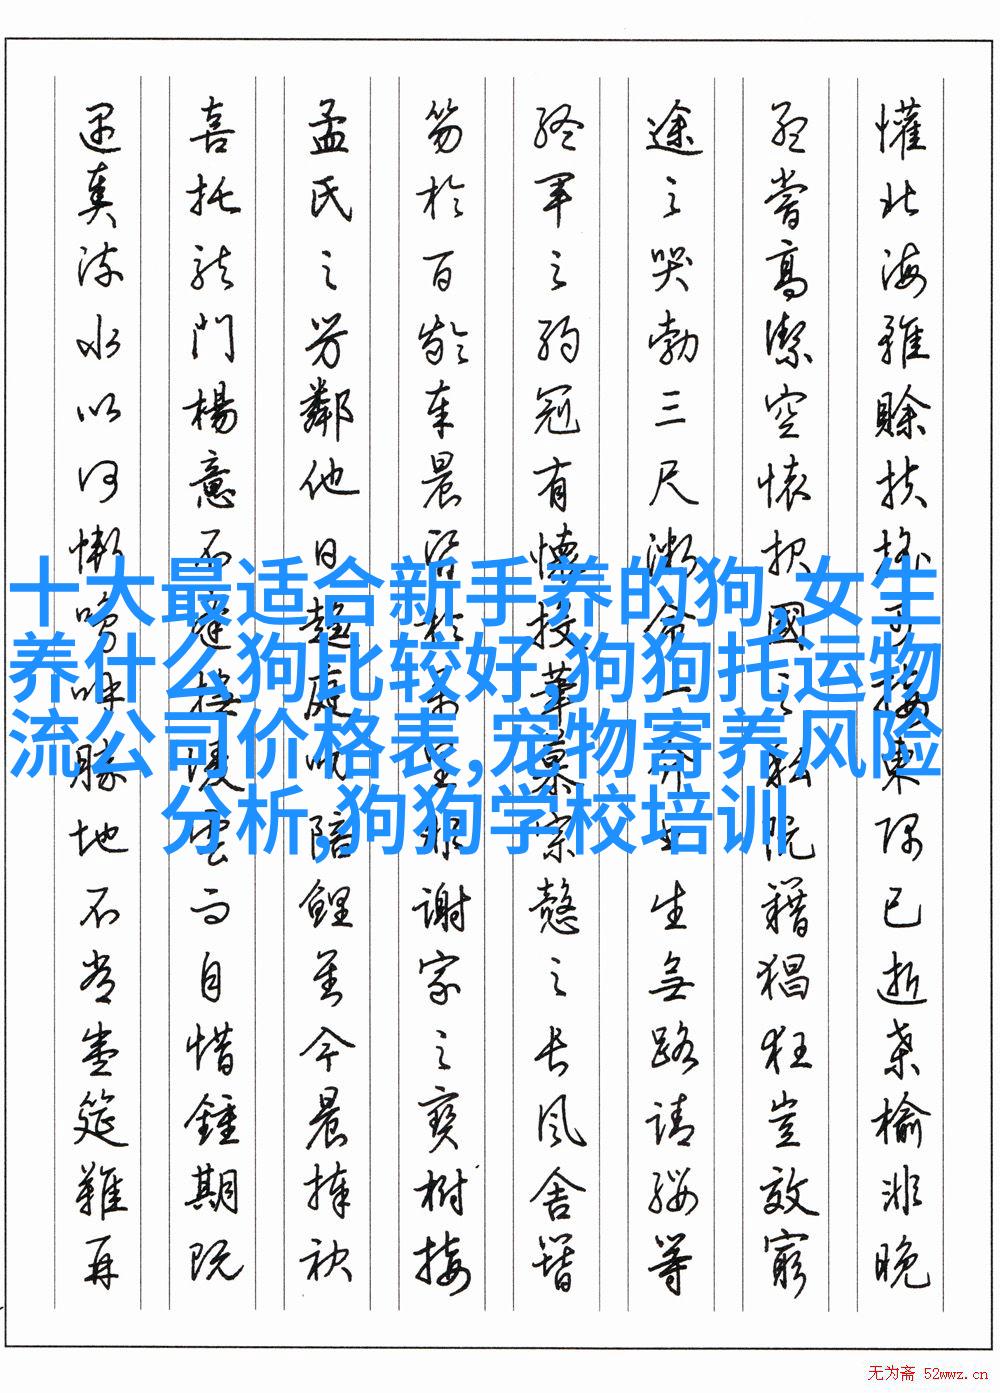 懽北海雖賒扶搖可接東隅已逝桑榆非晚
孟嘗高潔空懷報國之私阮籍猖狂豈效窮
途之哭勃三尺微命一介書生無路請纓等
終軍之弱冠有懷投筆慕宗愨之長風舍簪
笏於百齡奉晨昏於萬里非謝家之寶樹接
孟氏之芳鄰他日趨庭叨陪鯉對今晨捧袂
喜托龍門楊意不逢撫凌雲而自惜鍾期既
遇奏流水以何慚嗚呼勝地不常盛筵難再
十大最适合新手养的狗,女生
养什么狗比较好,狗狗托运物
流公司价格表,宠物寄养风险
分析,狗狗学校培训
无为斋 52wwz.cn